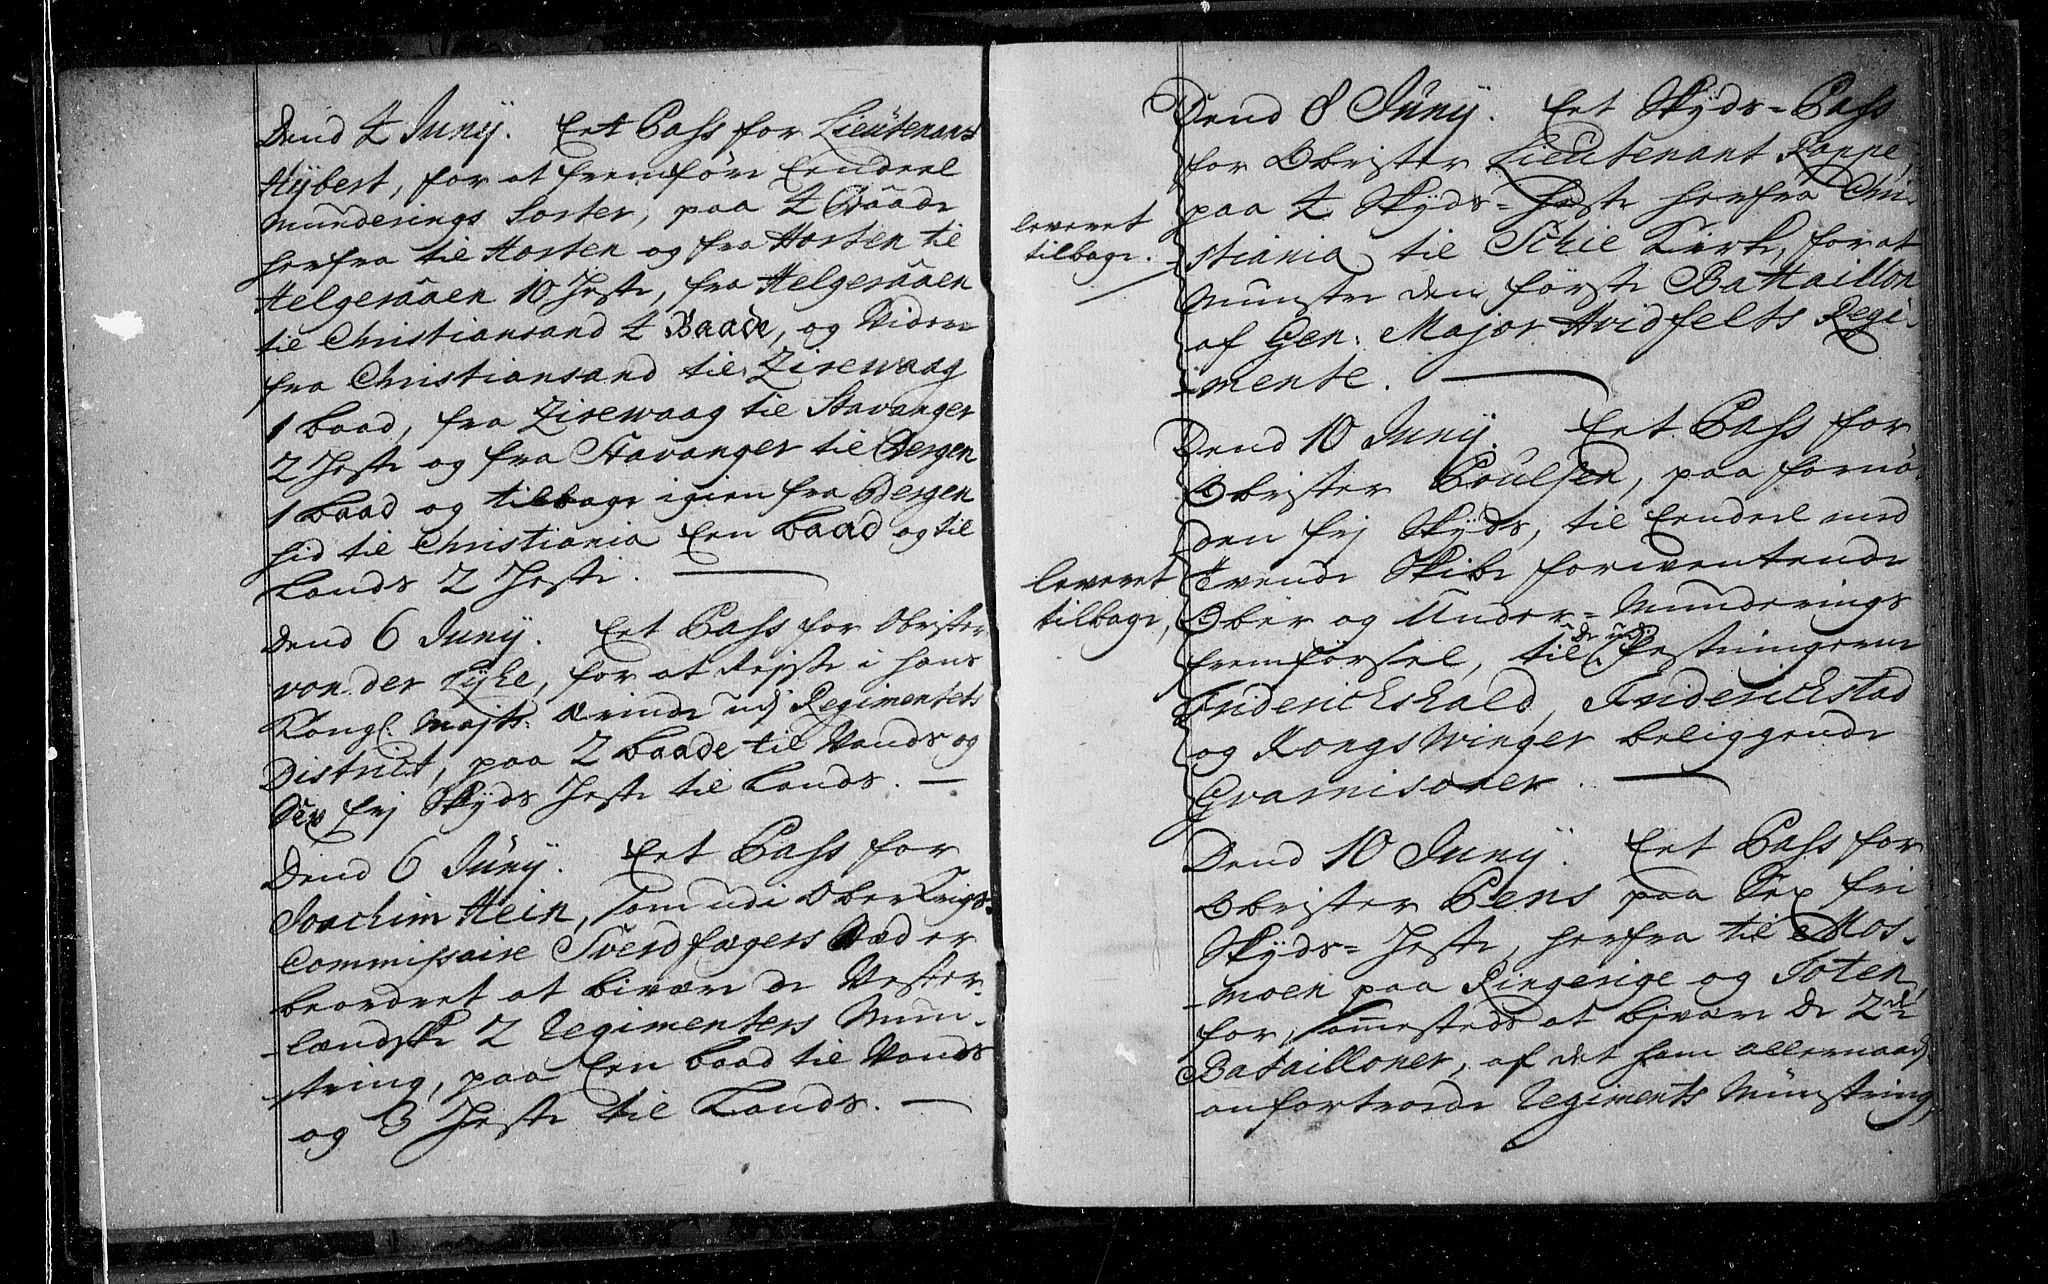 Dend 4 Juny. Eet Pass for Lieutenant
Hybert, for at fremføre Eendeel
Munderings Sorter, paa 4 Baade
herfra til Horten og fra Horten til
Helgeraaen 10 Heste, fra Helgeraaen
til Christiansand 4 Baade, og Videre
fra Christiansand til Zirewaag
1 baad, fra Zirewaag til Stavanger
2 Heste og fra Stavanger til Bergen
1 baad og tilbage igien fra Bergen
hid til Christiania Een baad og til
Lands 2 Heste.
Dend 6 Juny. Eet Pass for Obrister
von der Lyhe, for at Rejse i hans
Kongl. Majts. Ærinde udj Regimentets
District, paa 2 baade til Vands og
Sex frj Skyds Heste til Lands.
Dend 6 Juny. Eet Pass for
Joachim Hein, som udi Ober Krigs-
Commissaire Sverdfægers Stæd er
beordret at bivære de Vester-
-landske 2 Regimenters Mun-
string, paa Een baad til Vands
og 3 Heste til Lands.
Dend 8 Juny. Eet Skyds-Pass
for Obrister Lieutenant Rappe,
paa 4 Skyds-Heste herfra Chri-
leveret
tilbage.
-stiania til Schie Kirke, for at
Munstre den første Battaillon
af Gen. Major Hvidfelts Regi-
-mente.
Dend 10 Juny. Eet Pass for
Obrister Poulsen, paa fornø-
den frj Skyds, til Eendeel med
leveret
tilbage,
Tvende Skibe forwentende
Ober og Under-Munderings
fremførsel, til de udj Festningerne
Friderichshald, Friderichstad
og Kongswinger beliggende
Guarnisoner.
Dend 10 Juny. Eet Pass for
Obrister Pens paa Sex fri
Skyds-Heste, herfra til Mos-
-moen paa Ringerige og Toten,
for sammesteds at bivære de 2de
Batailloner, af det ham allernaad:
anfortroede Regiments Munstring,